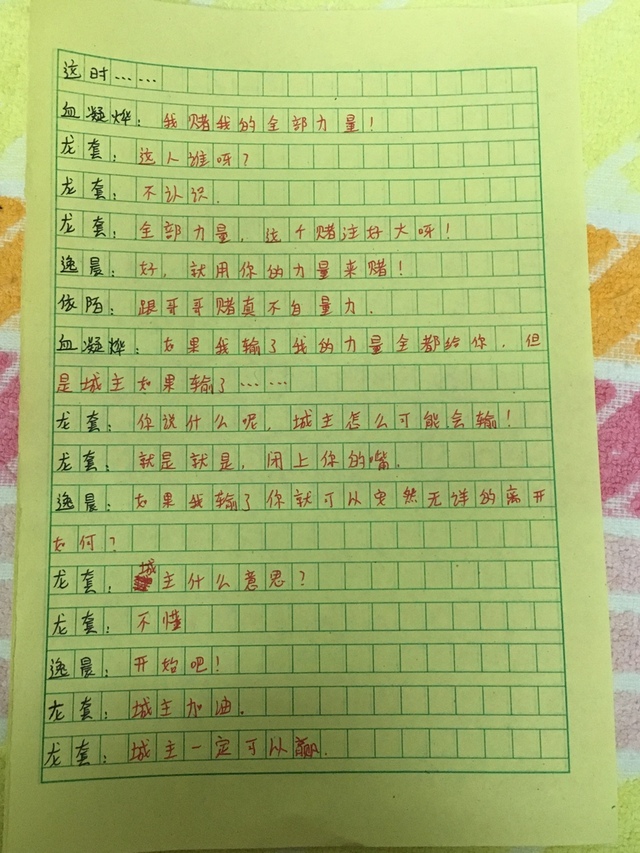 这时……
血凝烨：我赌我的全部力量！
龙套：这人谁呀？
龙套：不认识.
龙套：全部力量，这个赌注好大呀！
逸晨：好，就用你的力量来赌！
依陌：跟哥哥赌真不自量力.
血凝烨：如果我输了我的力量全都给你，但
是城主如果输了……
龙套：你说什么呢，城主怎么可能会输！
龙套：就是就是，闭上你的嘴.
逸晨：如果我输了你就可以安然无详的离开
如何？
龙套：城主什么意思？
龙套：不懂
逸晨：开始吧！
龙套：城主加油。
龙套：城主一定可以赢.